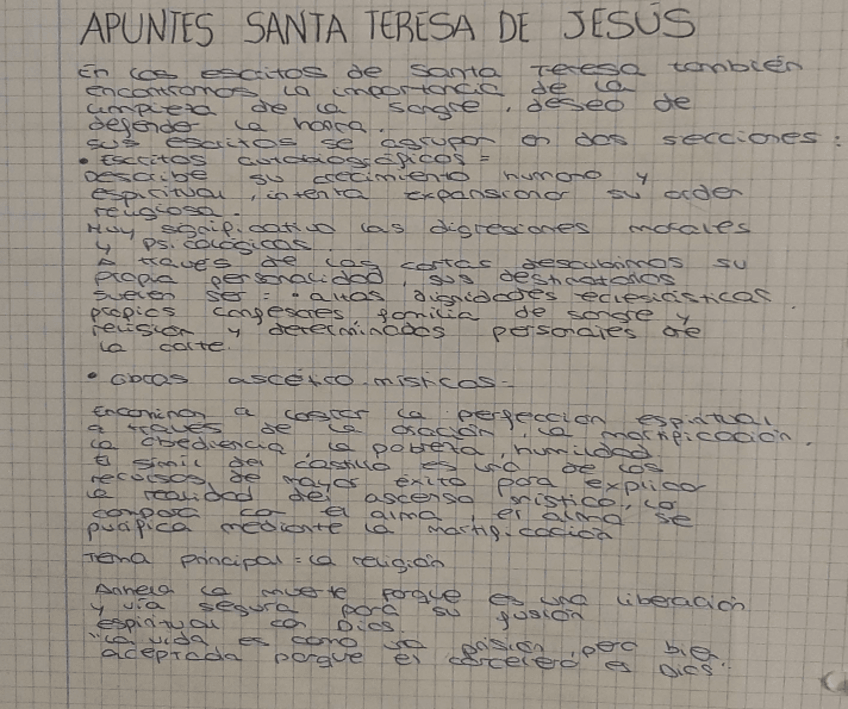 APUNTES SANTA TERESA DE JESÚS
En los escritos de Santa Teresa también
encontramos la importancia de la
limpieza de la sangre, deseo de
defender la honra.
sus escritos se agrupan en dos secciones:
• Escritos autobiográficos =
describe su crecimiento humano y
espiritual, intenta expansionar su orden
religiosa.
Hay significativo las digresiones morales
y psicológicas
A traves de las cartas descubrimos su
propia personalidad, sus destinatarios
suelen ser = • altas dignidades eclesiásticas
propios congeneres familia de sangre y
religion y determinados personajes de
la corte.
• Obras ascético místicos =
Encaminan a lograr la perfección espiritual
a traves de la oración, la mortificación,
la obediencia, la pobreza, humildad.
El símil del castillo es uno de los
recursos de mayor éxito para explicar
la realidad del ascenso místico, lo
compara con el alma, el alma se
purifica mediante la mortificación
Tema principal = la religión
Anhela la muerte porque es una liberación
y via segura para su fusión
espiritual con Dios.
"la vida es como una prision, pero bien
aceptada porque el carcelero es Dios".